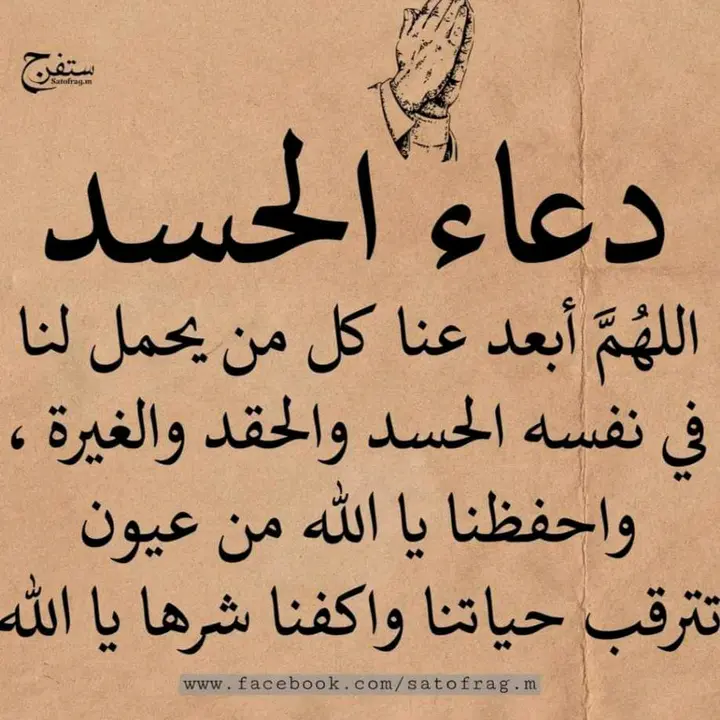 ستفرج
Satofrag.m
دعاء الحسد
اللهُمَّ أبعد عنا كل من يحمل لنا
في نفسه الحسد والحقد والغيرة ،
واحفظنا يا الله من عيون
تترقب حياتنا واكفنا شرها يا الله
www.facebook.com/satofrag.m